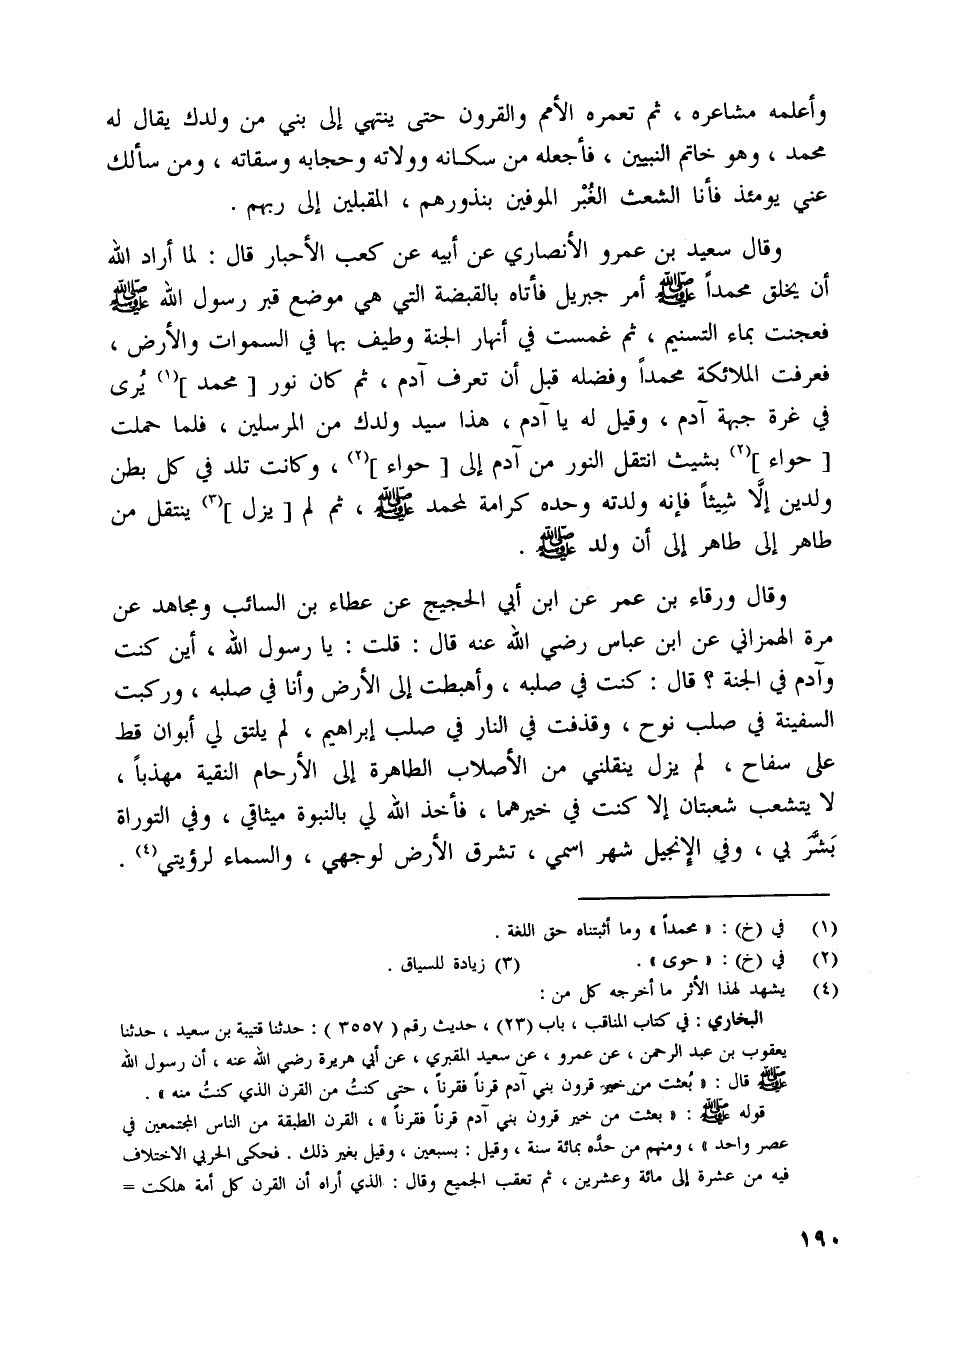 وأعلمه مشاعره ، ثم تعمره الأمم والقرون حتى ينتهي إلى بني من ولدك يقال له
محمد ، وهو خاتم النبيين ، فأجعله من سكانه وولاته وحجابه وسقاته ، ومن سألك
عني يومئذ فأنا الشعث الغُبْر الموفين بنذورهم ، المقبلين إلى ربهم .
وقال سعيد بن عمرو الأنصاري عن أبيه عن كعب الأحبار قال : لما أراد الله
أن يخلق محمداً ﷺ أمر جبريل فأتاه بالقبضة التي هي موضع قبر رسول الله ﷺ
فعجنت بماء التسنيم ، ثم غمست في أنهار الجنة وطيف بها في السموات والأرض ،
فعرفت الملائكة محمداً وفضله قبل أن تعرف آدم ، ثم كان نور [ محمد ](١) يُرى
في غرة جبهة آدم ، وقيل له يا آدم ، هذا سيد ولدك من المرسلين ، فلما حملت
[ حواء ](٢) بشيث انتقل النور من آدم إلى [ حواء ](٢) ، وكانت تلد في كل بطن
ولدين إلَّا شيثاً فإنه ولدته وحده كرامة لمحمد ﷺ ، ثم لم [ يزل ](٣) ينتقل من
طاهر إلى طاهر إلى أن ولد ﷺ .
وقال ورقاء بن عمر عن ابن أبي الحجيج عن عطاء بن السائب ومجاهد عن
مرة الهمزاني عن ابن عباس رضي الله عنه قال : قلت : يا رسول الله ، أين كنت
وآدم في الجنة ؟ قال : كنت في صلبه ، وأهبطت إلى الأرض وأنا في صلبه ، وركبت
السفينة في صلب نوح ، وقذفت في النار في صلب إبراهيم ، لم يلتق لي أبوان قط
على سفاح ، لم يزل ينقلني من الأصلاب الطاهرة إلى الأرحام النقية مهذباً ،
لا يتشعب شعبتان إلا كنت في خيرهما ، فأخذ الله لي بالنبوة ميثاقي ، وفي التوراة
بَشَّرَ بي ، وفي الإنجيل شهر اسمي ، تشرق الأرض لوجهي ، والسماء لرؤيتي(٤) .
(١) في (خ) : « محمداً » وما أثبتناه حق اللغة .
(٢) في (خ) : « حوى » . (٣) زيادة للسياق .
(٤) يشهد لهذا الأثر ما أخرجه كل من :
البخاري : في كتاب المناقب ، باب (٢٣) ، حديث رقم ( ٣٥٥٧ ) : حدثنا قتيبة بن سعيد ، حدثنا
يعقوب بن عبد الرحمن ، عن عمرو ، عن سعيد المقبري ، عن أبي هريرة رضي الله عنه ، أن رسول الله
ﷺ قال : « بُعثت من خير قرون بني آدم قرناً فقرناً ، حتى كنتُ من القرن الذي كنتُ منه » .
قوله ﷺ : « بعثت من خير قرون بني آدم قرناً فقرناً » ، القرن الطبقة من الناس المجتمعين في
عصر واحد » ، ومنهم من حدَّه بمائة سنة ، وقيل : بسبعين ، وقيل بغير ذلك . فحكى الحربي الاختلاف
فيه من عشرة إلى مائة وعشرين ، ثم تعقب الجميع وقال : الذي أراه أن القرن كل أمة هلكت =
١٩٠